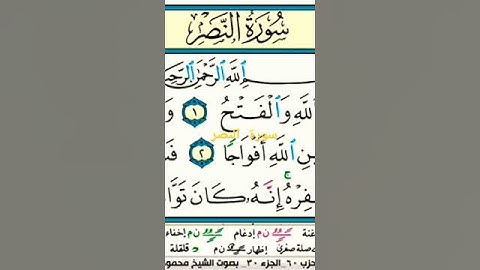 سُورَةُ النَّصْرِ
ـسْمِ اللَّهِ الرَّحْمَٰنِ الرَّحِيـ
ـاللَّهِ وَالْفَتْحُ ١ وَ
سورة النصر
ـينِ اللَّهِ أَفْوَاجًا ٢ فَسَـ
ـفِرْهُ إِنَّهُ كَانَ تَوَّا
ـغنة ن م إدغام ن م إخفاء
ـه صلة صغرى إظهار ن م قلقلة
حزب ٦٠_ الجزء ٣٠_ بصوت الشيخ محمو